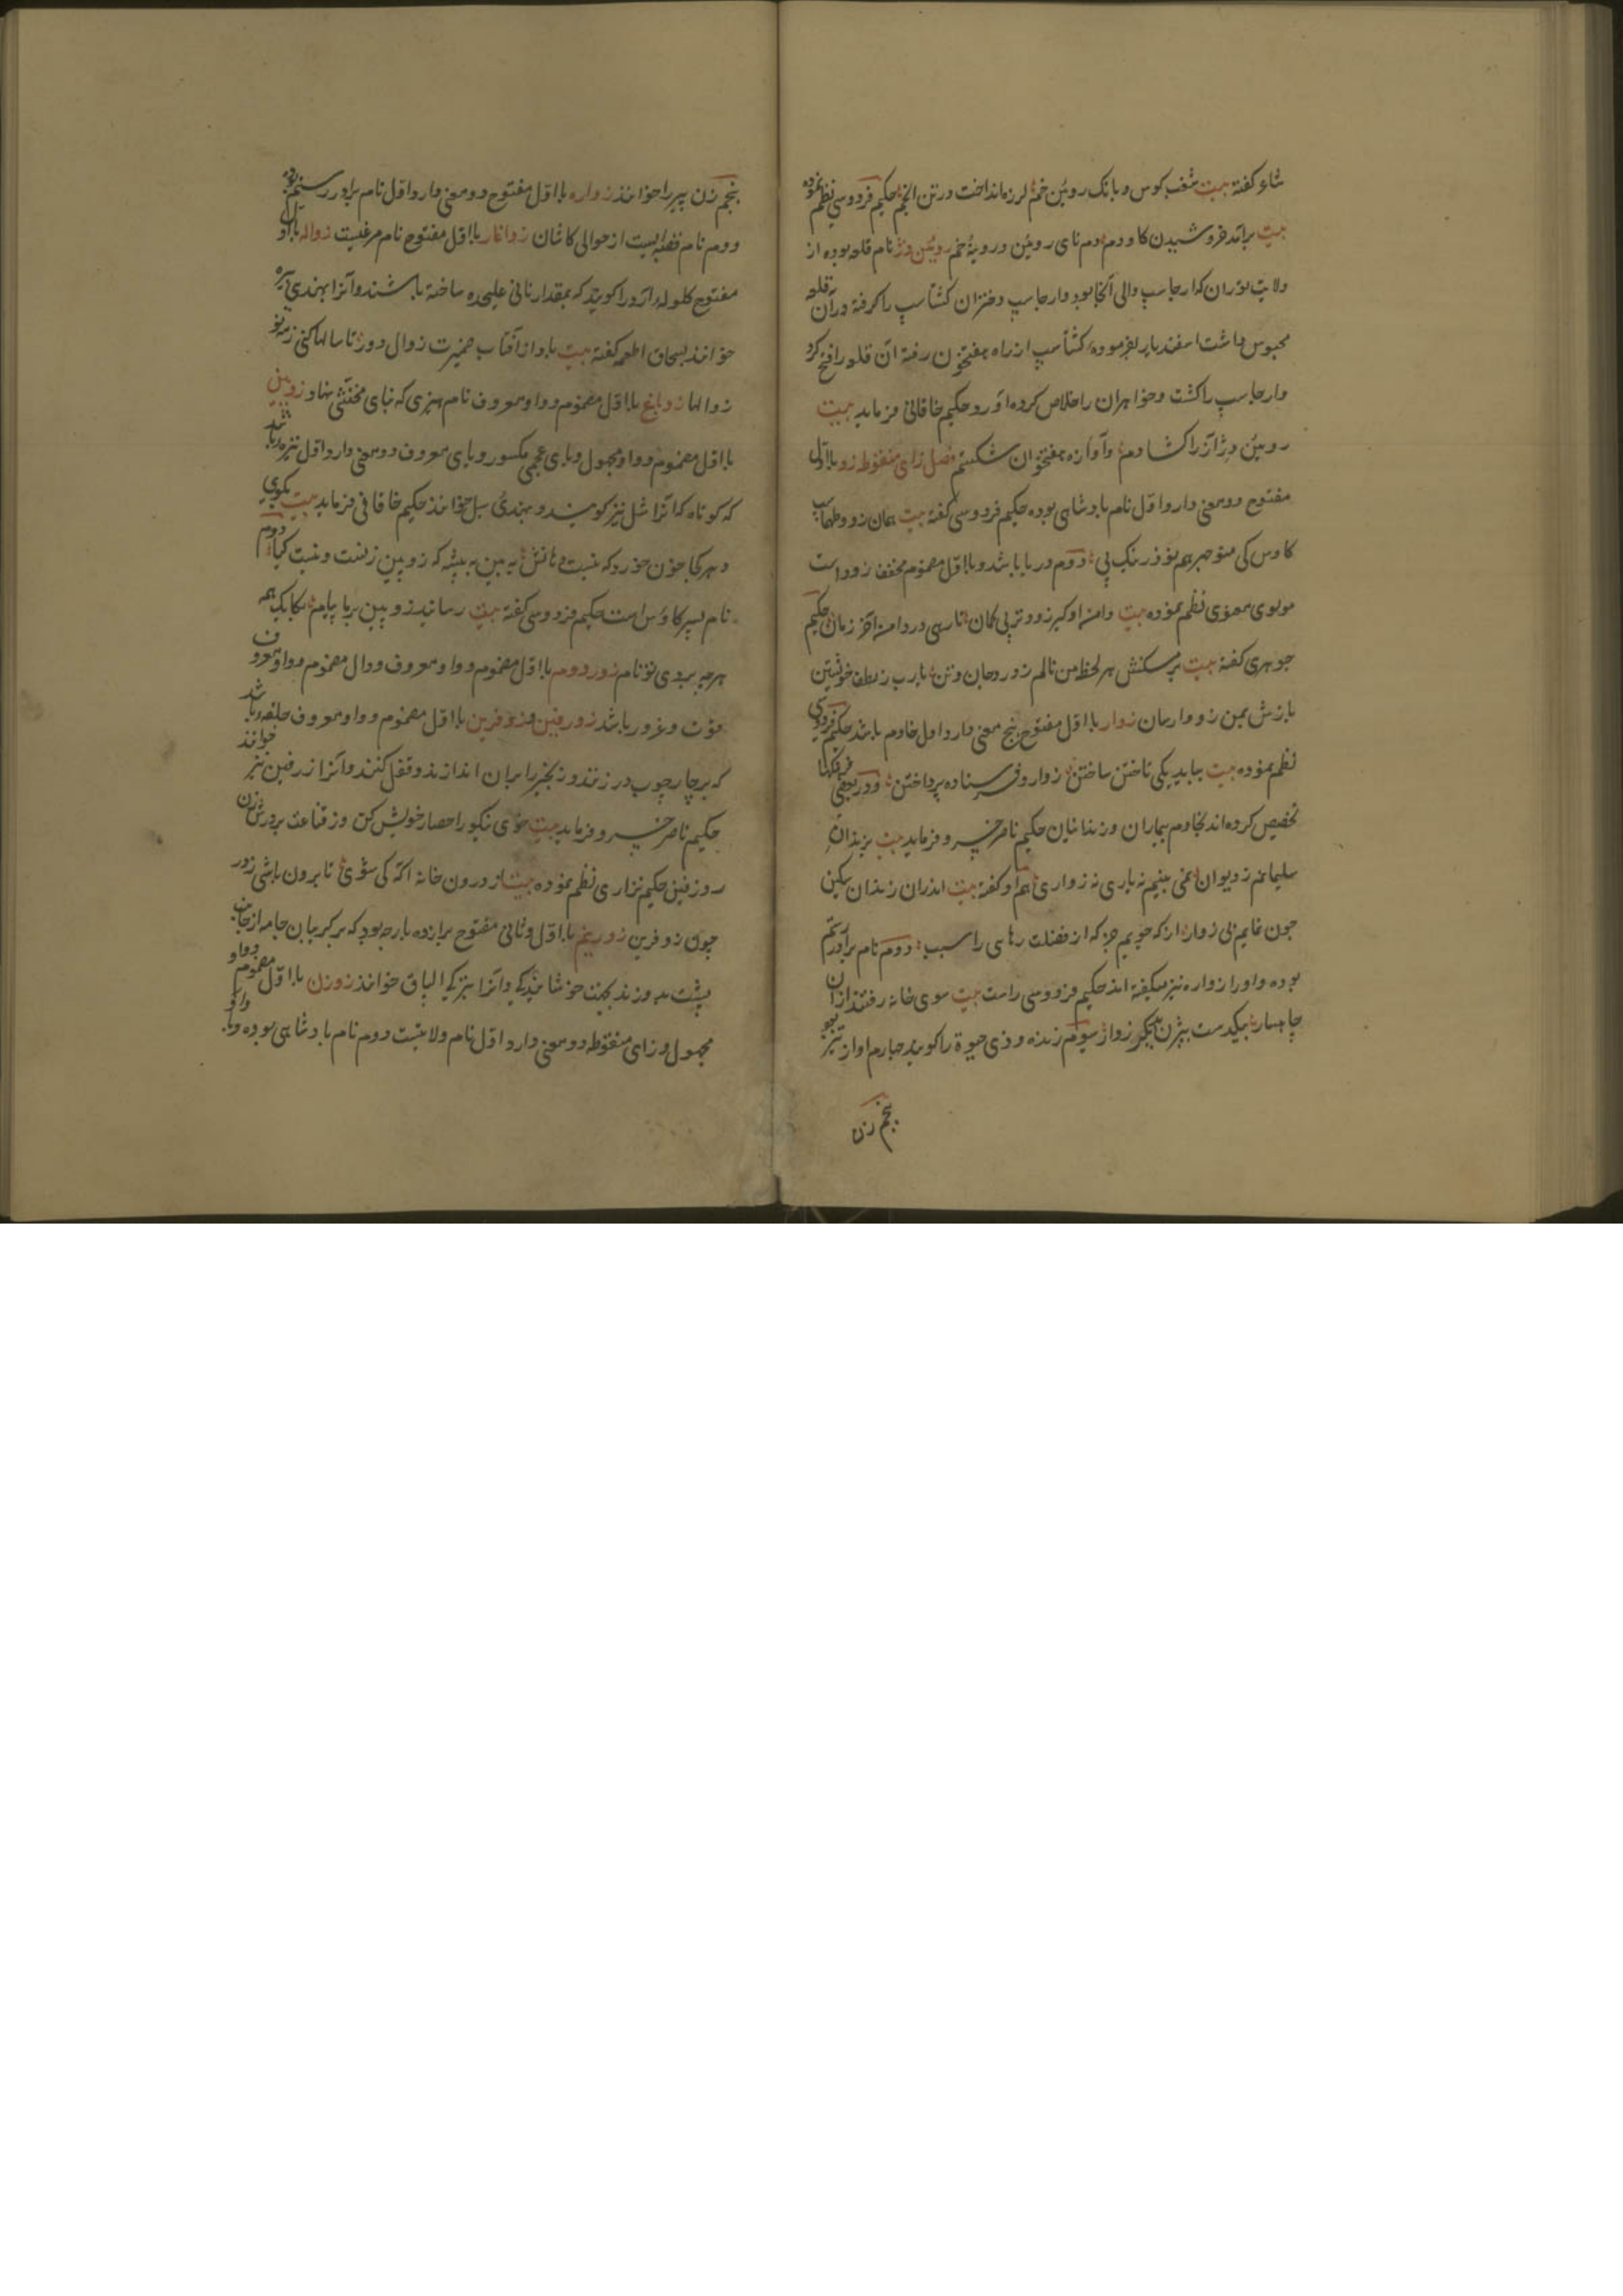 شاعر گفته بیت شغب کوس و بانک روئین خم لرزه انداخت در تن انجم حکیم فردوسی نظم نموده
بیت برآمد خروشیدن کاودم دم نای روئین و رویئه خم روئین دژ نام قلعه بوده از
ولایت توران که ارجاسپ والی آنجا بود وارجاسپ دختران کشتاسپ را گرفته در آن قلعه
محبوس داشت اسفندیار بفرموده کشتاسپ از راه هفتخون رفته آن قلعه را فتح کرد
وارجاسپ را کشت و خواهران را خلاص کرده آورد حکیم خاقانی فرماید بیت
روئین دژ آز را کشادم وآوازه هفتخوان شکستم فصل زای منقوطه زو با اول
مفتوح دو معنی دارد اول نام پادشاهی بوده حکیم فردوسی گفته بیت همان زو و طهماسب
کاوس کی منوچهر هم نوذر نیک پی دوم دریا باشد و با اول مضموم مخفف زود است
مولوی معنوی نظم نموده بیت دامن او گیر زوتر بی کمان تا رهی در دامن آخر زمان حکیم
جوهری گفته بیت بر مسکنش هر لحظه من نالم زور دجان و تن یا رب ز لطف خویشتن
بازش بمن زو وارسان زوار با اول مفتوح پنج معنی دارد اول خادم باشد حکیم فردوسی
نظم نموده بیت بباید یکی تاختن ساختن زوار و فرستاده پرداختن و در بعضی فرهنگها
تخصیص کرده اند بخادم بیماران و زندانیان حکیم ناصر خسرو فرماید بیت بزندان
سلیمانم ز دیوان نمی بینم نه یاری نه زواری هم او گفته بیت اندران زندان سکین
چون غایم بی زوار از که جویم جز که از فضلت رهایی را سبب دوم نام برادر رستم
بوده و او را زواره نیز میگفته اند حکیم فردوسی راست بیت سوی خانه رفتند از ان
چاهسار بیکدست بیژن بدیگر زوار سوم زنده و ذی حیوة را گویند چهارم آواز تیز بود
پنجم زن
پنجم زن پیر را خوانند زواره با اول مفتوح دو معنی دارد اول نام برادر رستم بود
دوم نام قصبه ایست از حوالی کاشان زواغار با اول مفتوح نام مرغیست زواله با اول
مفتوح کلوله آرد را گویند که بمقدار نانی علیحده ساخته باشند و آنرا بهندی پیره
خوانند بسحاق اطعمه گفته بیت بادا ز آفتاب ضمیرت زوال دور تا سالها کنی ز مه نو
زوالها زوباغ با اول مضموم و واو معروف نام هیزی که بنای مخنثی نهاد زوبین
با اول مضموم و واو مجهول و بای عجمی مکسور و یای معروف دو معنی دارد اول نیزه باشد
که کوتاه که آنرا شل نیز گویند و بهندی سیل خوانند حکیم خاقانی فرماید بیت بگوی
و هر کجا خون خورد که نیست نهانش به بین به بیشه که زوبین زنست و نبت گیا دوم
نام پسر کاوس است حکیم فردوسی گفته بیت رساند زوبین بر پا پیام یکایک همه
هر چه بردی تو نام زوردوم با اول مضموم و واو معروف و دال مضموم و واو معروف
قوت و غرور باشد زورفین و زوفرین با اول مضموم و واو معروف حلقه باشد
که بر چارچوب در زنند و زنجیر را بران اندازند و قفل کنند و آنرا زرفین نیز خوانند
حکیم ناصر خسرو فرماید بیت خوی نیکو را حصار خویش کن وز قناعت بر درش زن
روزفین حکیم نزاری نظم نموده بیت از درون خانه آکه کی شوی تا برون باشی ز در
چون زوفرین زوریغ با اول و ثانی مفتوح برازده پارچه بود که بر گریبان جامه از جانب
پشت بدوزند بجهت خوشایندگی و آنرا نیزکی الباق خوانند زوزن با اول مضموم و واو
مجهول و زای منقوطه دو معنی دارد اول نام ولایتست دوم نام پادشاهی بوده و با